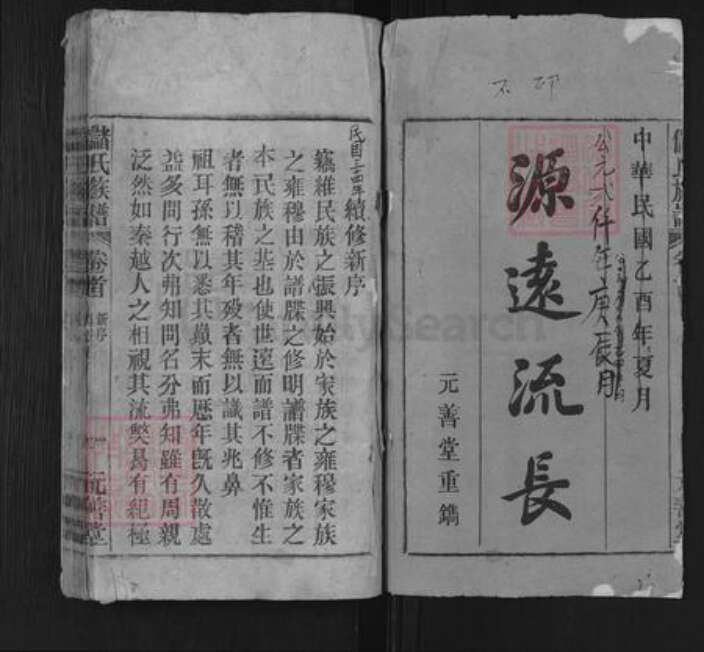 不印
中華民國乙酉年夏月
公元貳仟年庚辰月
源遠流長
元善堂重鐫
民國三十四年續修新序
竊維民族之振興始於家族之雍穆家族
之雍穆由於譜牒之修明譜牒者家族之
本民族之基也使世遠而譜不修不惟生
者無以稽其年歿者無以識其兆鼻
祖耳孫無以悉其巔末而歷年既久散處
益多問行次弗知問名分弗知雖有周親
泛然如秦越人之相視其流獘曷有紀極
儲氏族譜
卷首
新序
元善堂